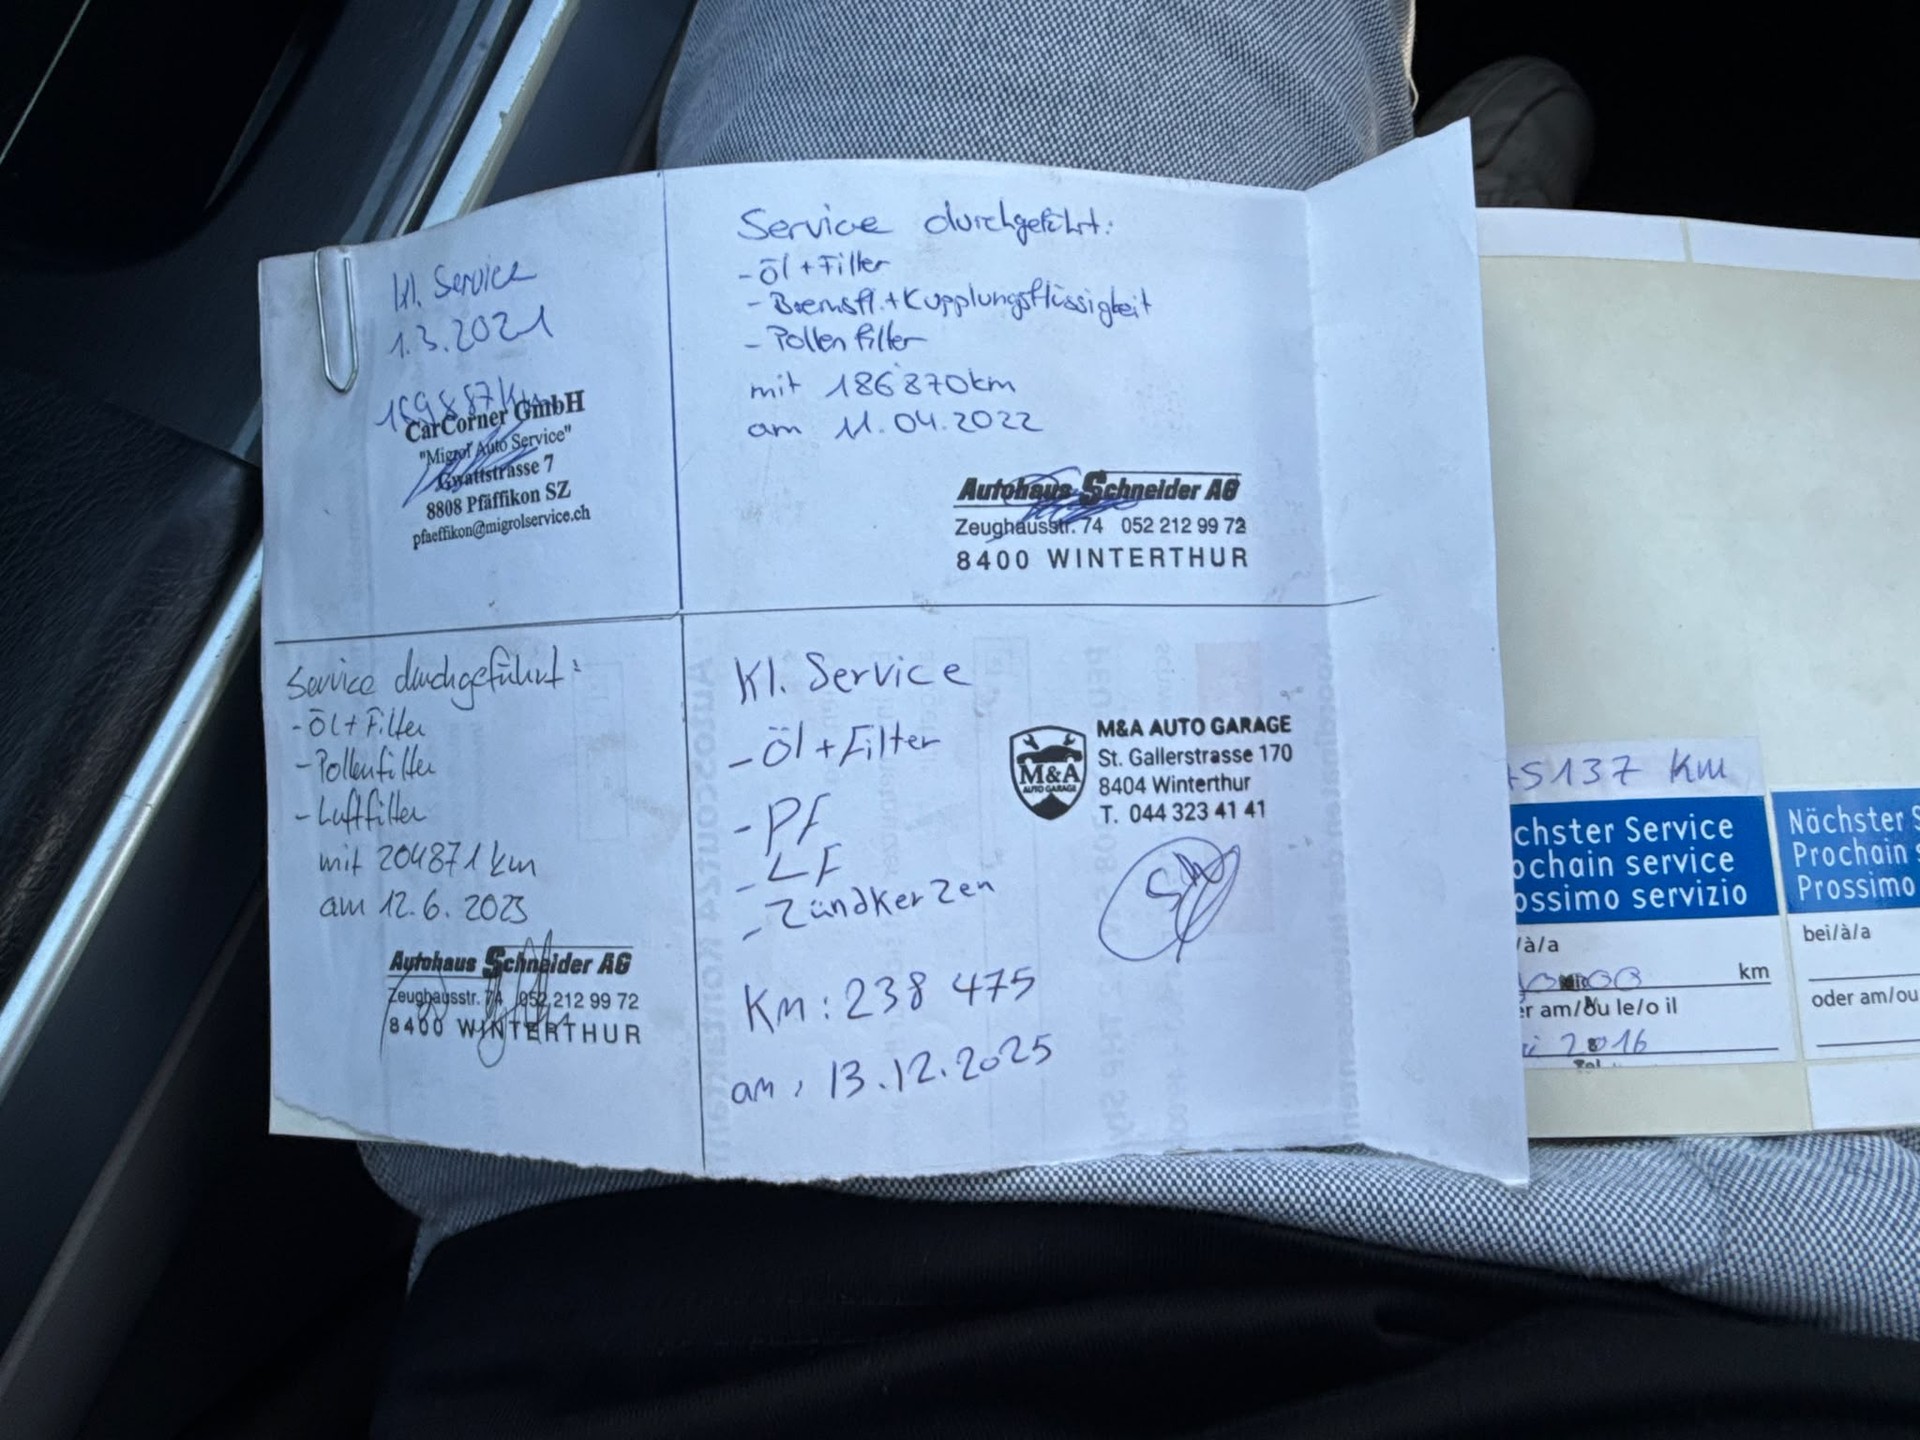 kl. Service
1.3.2021
169887 km
CarCorner GmbH
"Migrol Auto Service"
Gwattstrasse 7
8808 Pfäffikon SZ
pfaeffikon@migrolservice.ch
Service durchgeführt:
- Öl + Filter
- Bremsfl. + Kupplungsflüssigkeit
- Pollenfilter
mit 186'870km
am 11.04.2022
Autohaus Schneider AG
Zeughausstr. 74 052 212 99 72
8400 WINTERTHUR
Service durchgeführt:
- Öl + Filter
- Pollenfilter
- Luftfilter
mit 204871 km
am 12.6.2023
Autohaus Schneider AG
Zeughausstr. 74 052 212 99 72
8400 WINTERTHUR
Kl. Service
- Öl + Filter
- PF
- LF
- Zündkerzen
Km: 238 475
am, 13.12.2025
M&A
AUTO GARAGE
M&A AUTO GARAGE
St. Gallerstrasse 170
8404 Winterthur
T. 044 323 41 41
5137 Km
chster Service
ochain service
ossimo servizio
/à/a
km
er am/ou le/o il
2016
Nächster S
Prochain s
Prossimo
bei/à/a
oder am/ou